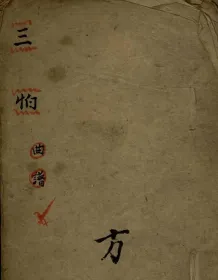 三怕
曲譜
方